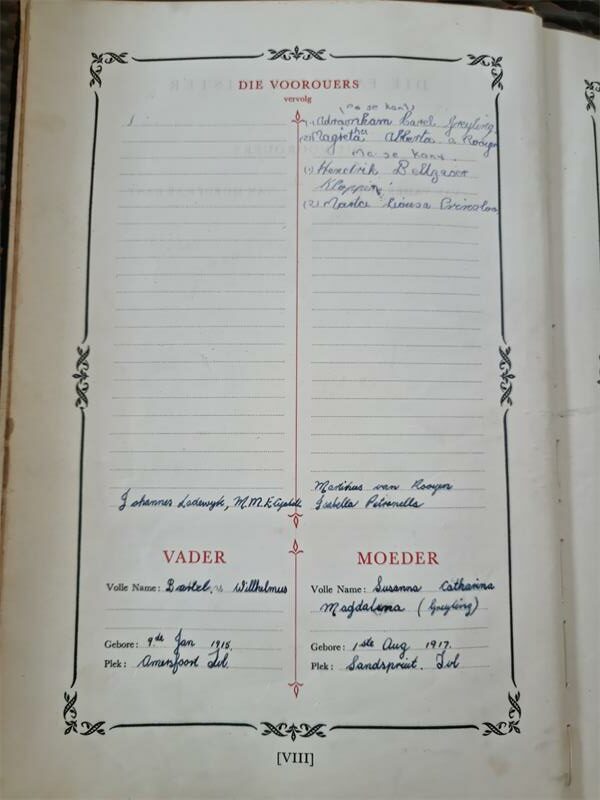 DIE VOOROUERS
vervolg
(Pa se kant)
(1) Adraanham Carel Greyling
(2) Magrietha Alberta v Rooyen
Ma se kant.
(1) Hendrik Beltzaser
Kloppers
(2) Louisa Prinsloo
Johannes Lodewyk, M.M.E.
Marthius van Rooyen
Isabella Petronella
VADER
Volle Name: Willhelmus
Gebore: 9de Jan 1915.
Plek: Amersfoort Tvl.
MOEDER
Volle Name: Susanna Catharina
Magdalena (Greyling)
Gebore: 1ste Aug 1917.
Plek: Sandspruit. Tvl
[VIII]